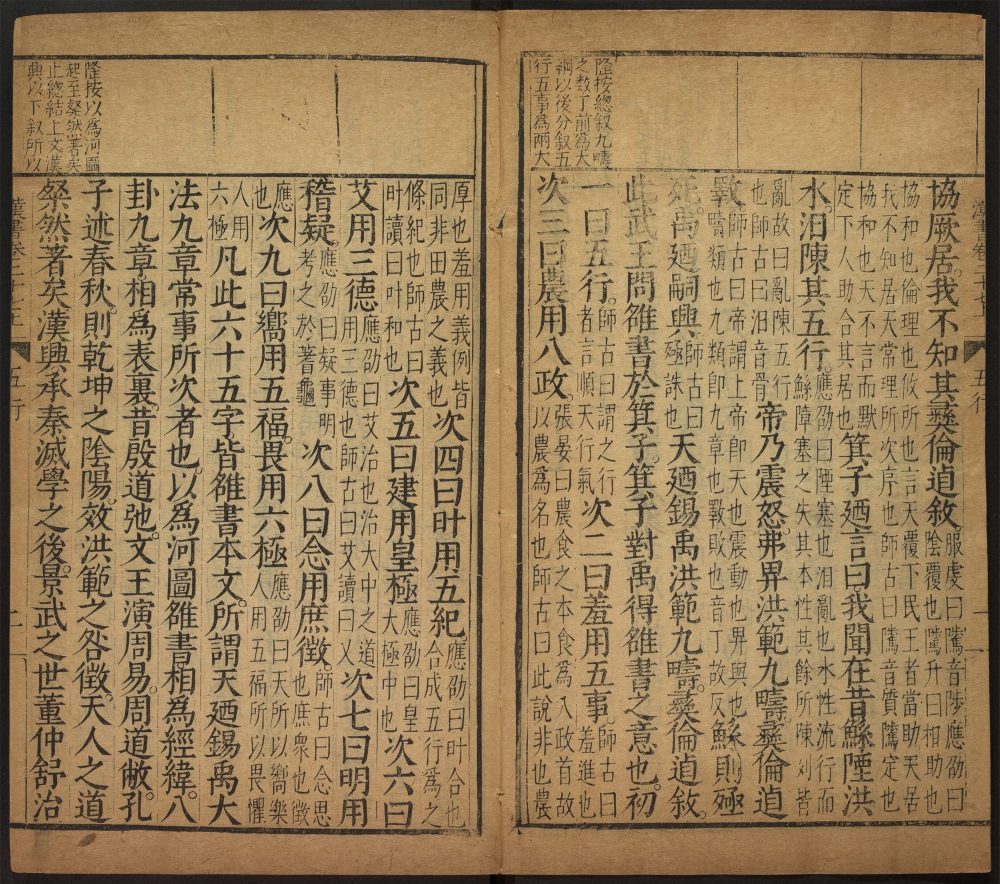 隆按總叙九疇
之数丁前為大
綱以後分叙五
行五事為兩大
漢書卷二十七上　五行　一
協厥居。我不知其彝倫逌敘。服虔曰隲音陟應劭曰隂覆也隲升曰相助也
協和也倫理也攸所也言天覆下民王者當助天居我不知居天常理所次序也師古曰隲音質隲定也
協和也天不言而默定下人助合其居也箕子廼言曰我聞在昔鯀陻洪
水。汨陳其五行。應劭曰陻塞也汨亂也水性流行而鯀障塞之失其本性其餘所陳列皆
亂故曰亂陳五行也師古曰汨音骨帝乃震怒弗畀洪範九疇。彝倫逌
斁師古曰帝謂上帝即天也震動也畀與也疇類也九類即九章也斁敗也音丁故反鯀則殛
死禹廼嗣興師古曰殛誅也天廼錫禹洪範九疇。彝倫逌敘。
此武王問雒書於箕子。箕子對禹得雒書之意也。初
一曰五行。師古曰謂之行者言順天行氣次二曰羞用五事。師古曰羞進也
次三曰農用八政。張晏曰農食之本食為八政首故以農為名也師古曰此說非也農
隆按以為河圖
起至粲然著矣
止總結上文漢
興以下叙所以
厚也羞用義例皆同非田農之義也次四曰叶用五紀。應劭曰叶合也合成五行為之
條紀也師古曰叶讀曰叶和也次五曰建用皇極應劭曰皇大極中也次六曰
艾用三德應劭曰艾治也治大中之道用三德也師古曰艾讀曰乂次七曰明用
稽疑。應劭曰疑事明考之於蓍龜次八曰念用庶徵。師古曰念思也庶衆也徵
應也次九曰嚮用五福。畏用六極應劭曰天所以嚮樂人用五福所以畏懼
人用六極凡此六十五字皆雒書本文。所謂天廼錫禹大
法九章常事所次者也。以為河圖雒書相為經緯。八
卦九章相為表裏。昔殷道弛。文王演周易。周道敝。孔
子述春秋。則乾坤之陰陽。效洪範之咎徵。天人之道
粲然著矣。漢興承秦滅學之後。景武之世董仲舒治
漢書卷二十七上　五行　二